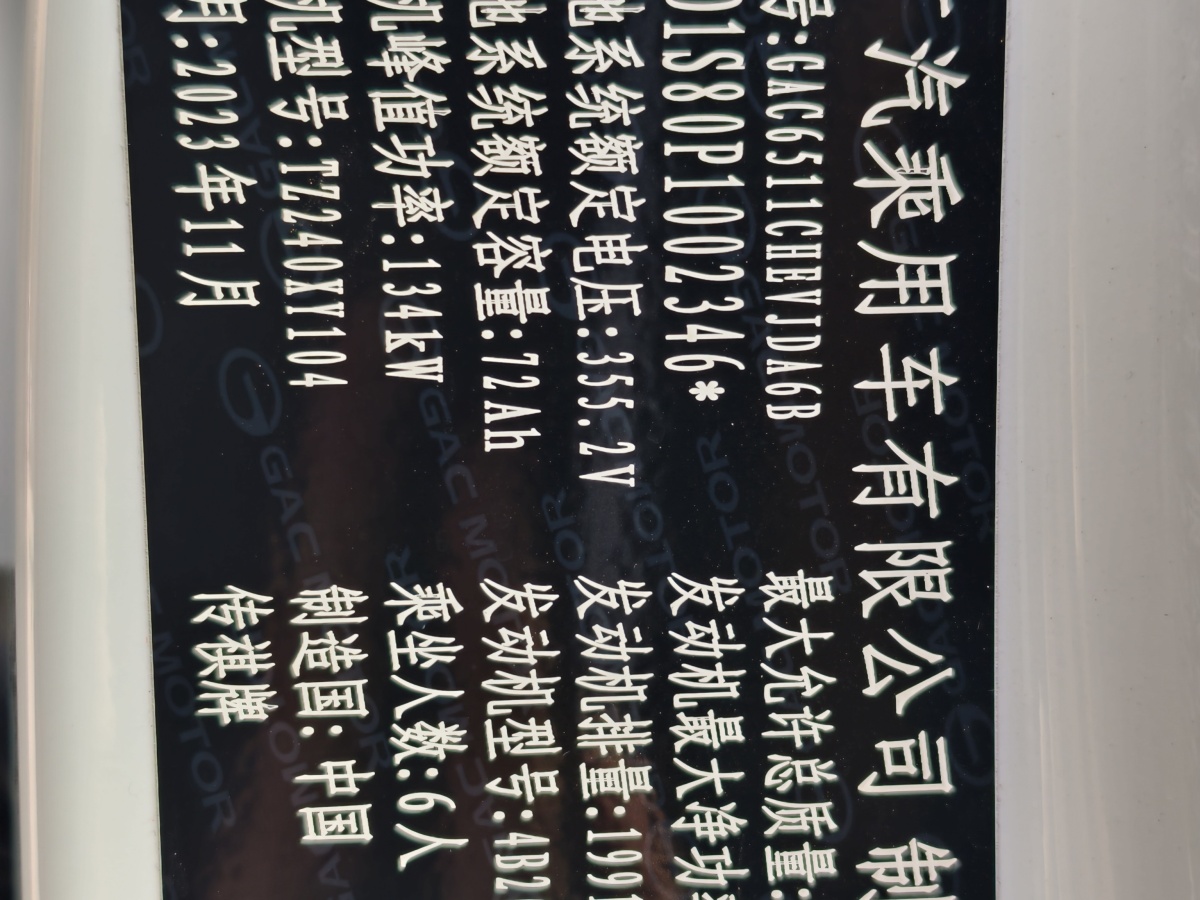 汽乘用车有限公司 制
号:GAC6511CHEVJDA6B 最大允许总质量:
D1S80P1002346* 发动机最大净功
池系统额定电压:355.2V 发动机排量:1991
池系统额定容量:72Ah 发动机型号:4B2
机峰值功率:134kW 乘坐人数:6人
机型号:TZ240XY104 制造国: 中国
月:2023年11月 传祺牌
GAC MOTOR